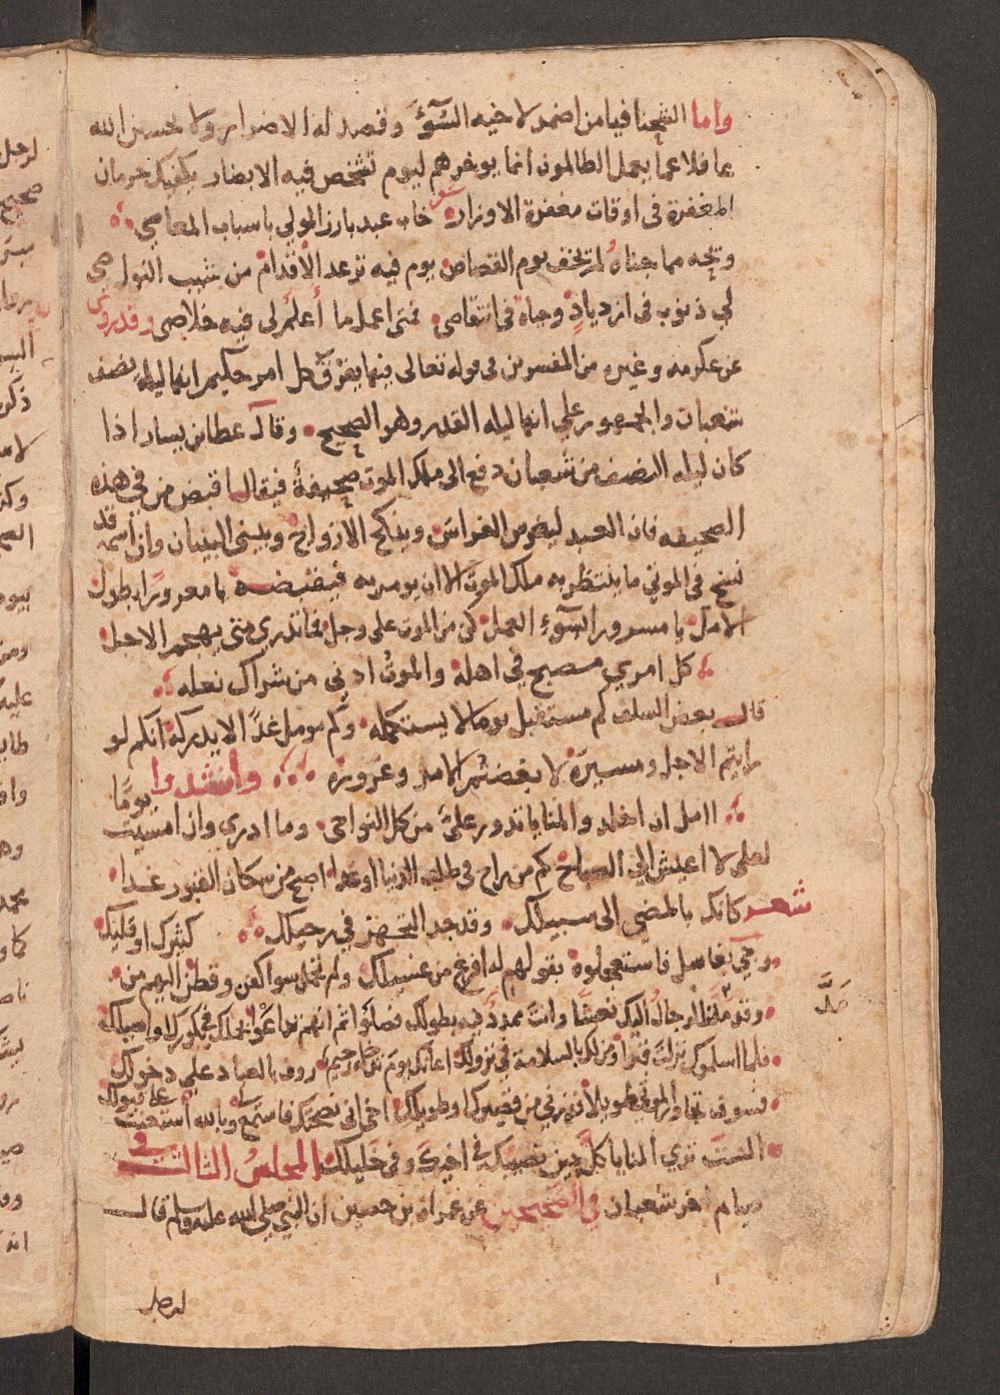 واما الشحنا فيا من اضمر لاخيه السّوٓءَ وقصد له الاضرار ولا تحسبن الله
غافلا عما يعمل الظالمون انما يوخرهم ليوم تشخص فيه الابصار يكفيك حرمان
المغفرة في اوقات مغفرة الاوزار شعر خاب عبد بارز المولي باسباب المعاصي
ويحه مما جناه لم يخف يوم القصاص يوم فيه ترعد الاقدام من شيب النواصي
لي ذنوب في ازدياد وحياه في انتقاص فمتى اعمل ما أعلم لى فيه خلاصي وقد روي
عن عكرمه وغيره من المفسرين في قوله تعالى فيها يفرق كل امر حكيم انها ليلة نصف
شعبان والجمهور علي انها ليله القدر وهو الصحيح وقال عطا بن يسار اذا
كان ليله النصف من شعبان دفع الى ملك الموت صحيفة فيقال اقبض من في هذه
الصحيفه فان العبد ليغرس الغراس وينكح الازواج ويبنى البنيان وان اسمه قد
نسخ في الموتي ما ينتظر به ملك الموت الا ان يومر به فيقبضه يا مغرورا بطول
الامل يا مسرورا بسوٓء العمل كن من الموت على وجل فما تدري متى يهجم الاجل
كل امرئ مصبح في اهله والموت ادني من شراك نعله
قال بعض السلف كم مستقبل يوما لا يستكمله وكم مومل غدًا لا يدركه انكم لو
رايتم الاجل ومسيره لابغضتم الامل وغروره وانشدوا
اامل ان اخلد والمنايا تدور عليّ من كل النواحي وما ادري وان امسيت يومًا
لعلى لا اعيش الي الصباح كم من راح في طلب الدنيا او غدا اصبح من سكان القبور غدا
شعر كانك بالمضي الى سبيلك وقد جد التجهز في رحيلك
وجي بغاسل فاستعجلوه بقولهم له افرغ من غسيلك ولم تحمل سوا كفن وقطن اليهم من كثيرك او قليلك
وقد مدّ الرجال اليك نعشا وانت ممدد فيه بطولك وصلوا ثم انهم تداعوا لحملك في بكورك او اصيلك
فلما اسلموك نزلت قبرا ومن لك بالسلامة في نزولك اعانك يوم تدخله رحيم روف بالعباد علي دخولك
فسوف تجاور الموتي طويلا فذرني من قصيرك او طويلك اخي اني نصحتك فاستمع لي وبالله استعنت علي قبولك
الست تري المنايا كل حين تصيبك في اخيك وفي خليلك المجلس الثالث في
صيام اخر شعبان في الصحيحين عن عمران بن حصين ان النبي صلى الله عليه وسلم قال
لرجل
صلَّ